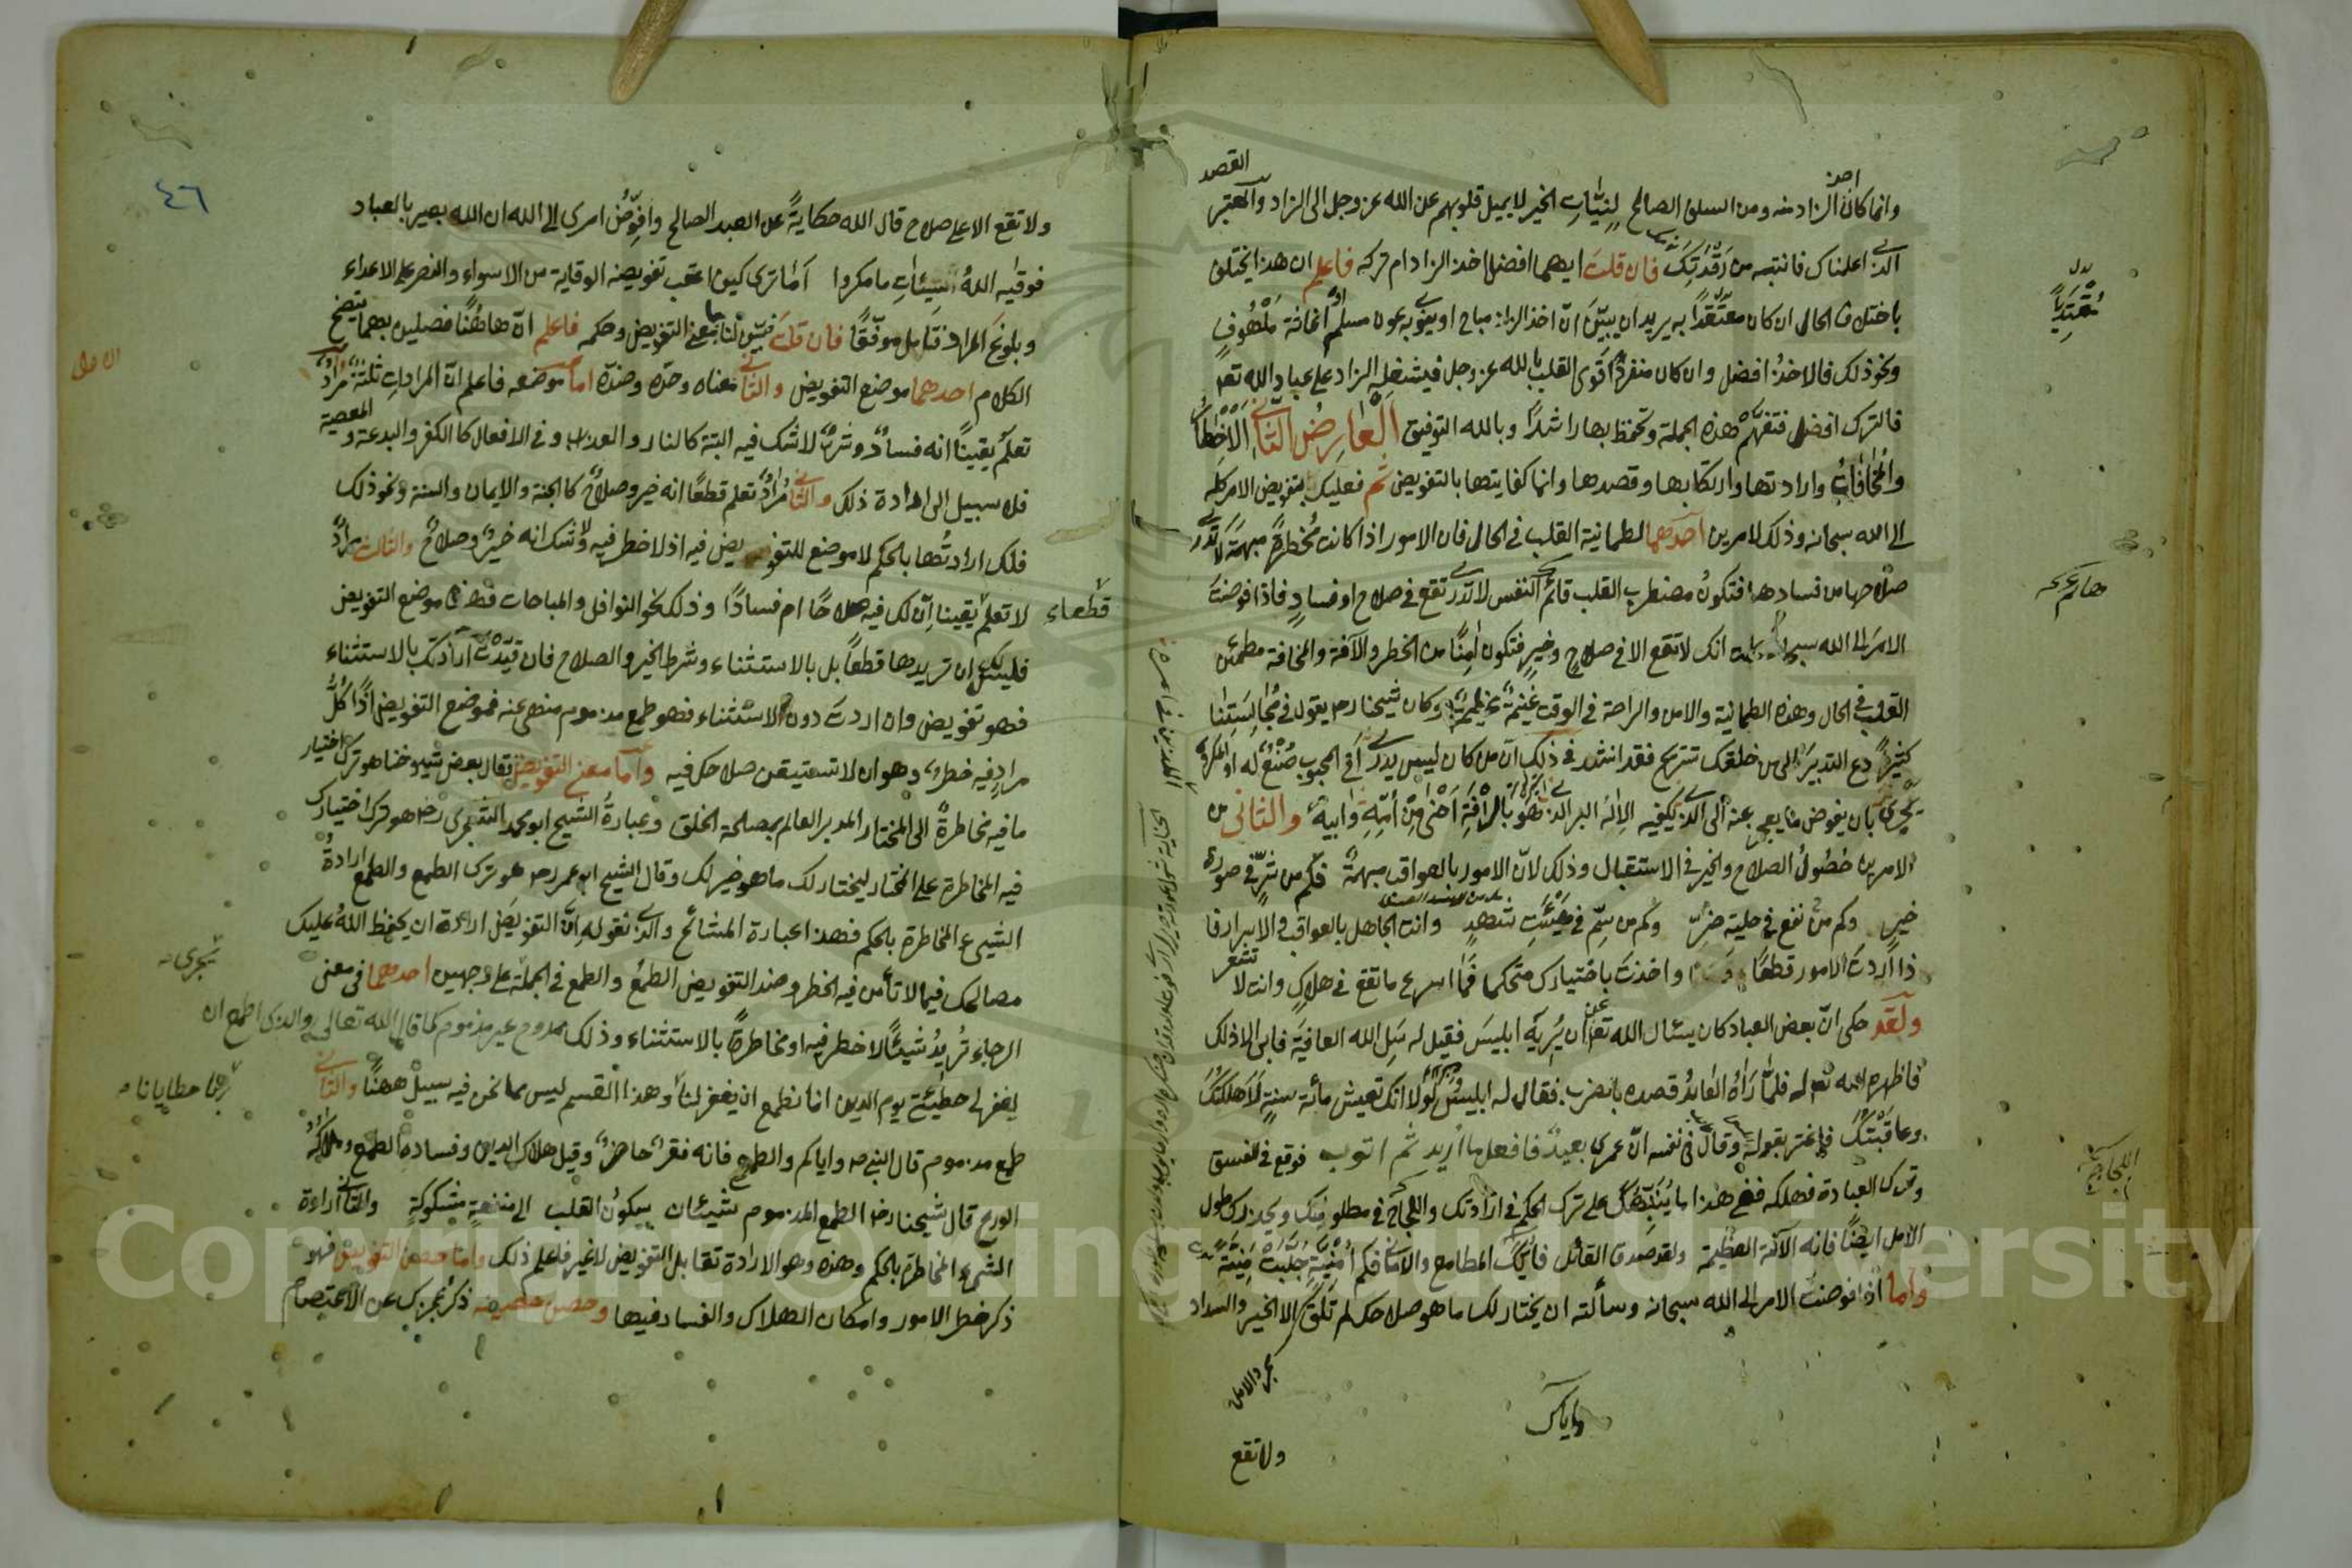 القصد
اخذ
وانما كان الزاد منه ومن السلف الصالح لنيات الخير لا بميل قلوبهم عن الله عز وجل الى الزاد والمعتبر
الذي اعلمناك فانتبه من رقدتك فان قلت ايهما افضل اخذ الزاد ام تركه فاعلم ان هذا يختلف
باختلاف الحال ان كان مقتدا به يريد ان يبين ان اخذ الزاد مباح او ينوي به عون مسلم او اغاثة ملهوف
ونحو ذلك فالاخذ افضل وان كان منفردا قوي القلب بالله عز وجل فيشغله الزاد على عباد الله تعه
فالترك افضل فتفهم هذه الجملة وتحفظ بها راشدا وبالله التوفيق العارض الثاني الاخطار
والمخافات وارادتها وارتكابها وقصدها وانما كفايتها بالتفويض ثم فعليك بتفويض الامر كله
الى الله سبحانه وذلك لامرين احدهما لطمانية القلب في الحال فان الامور اذا كانت مخطرة مبهمة لا تدري
صلاحها من فسادها فتكون مضطرب القلب قائم النفس لا تدري تقع في صلاح او فساد فاذا فوضت
الامر الى الله انك لا تقع الا في صلاح وخير فتكون امنا من الخطر والآفة والمخافة مطمئن
القلب في الحال وهذه الطمانية والامن والراحة في الوقت غنيمة عظيمة وكان شيخنا رحه يقول في مجالستنا
كثيرا دع التدبير الى من خلقك تسترح فقد انشد في ذلك ان من كان ليس يدري أفي المحبوب صنع له او المكروه
يجري بان يفوض ما يعجز عنه الى الذي يكفيه الاله البر الذي هو بالرأفة احنى من أمه وابيه والثاني من
الامرين حصول الصلاح والخير في الاستقبال وذلك لان الامور بالعواقب مبهمة فكم من شر في صورة
خير وكم من نفع في حلية ضر وكم من سم في هيئت شهد وانت الجاهل بالعواقب والاسرار فا
ذا اردت الامور قطعا واخذت باختيارك متحكما فما اسرع ما تقع في هلاك وانت لا تشعر
ولقد حكى ان بعض العباد كان يسئال الله تعه ان يريه ابليس فقيل له سل الله العافية فابى الا ذلك
فاظهره الله تعه له فلما راه العابد قصده بالضرب فقال له ابليس لولا انك تعيش مائة سنة لاهلكتك
وعاقبتك فاغتر بقوله وقال في نفسه ان عمري بعيد فافعل ما اريد ثم اتوب فوقع في الفسق
وترك العبادة فهلك ففي هذا ما ينبهك على ترك الحكم في ارادتك واللجاج في مطلوبك ويحذرك طول
الامل ايضا فانه الآفة العظيمة ولقد صدق القائل فاياك المطامع والاماني فكم أمنية جلبت منية
واما اذا فوضت الامر الى الله سبحانه وسألته ان يختار لك ما هو صلاحك لم تلق الا الخير والسداد
واياك
ولا تقع
٤٦
ولا تقع الا على صلاح قال الله حكاية عن العبد الصالح وافوض امري الى الله ان الله بصير بالعباد
فوقيه الله سيئات ما مكروا اما ترى كيف اعقب تفويضه الوقاية من الاسواء والنصر على الاعداء
وبلوغ المراد فتأمل موفقا فان قلت فبين لنا معنى التفويض وحكمه فاعلم ان هاهنا فصلين بهما يتضح
الكلام احدهما موضع التفويض والثاني معناه وحده وضده اما موضعه فاعلم ان المرادات ثلثة مراد
تعلم يقينا انه فساد وشر لا شك فيه البتة كالنار والعذاب وفي الافعال كالكفر والبدعة والمعصية
فلا سبيل الى ارادة ذلك والثاني مراد تعلم قطعا انه خير وصلاح كالجنة والايمان والسنة ونحو ذلك
فلك ارادتها بالحكم لا موضع للتفويض فيه اذ لا خطر فيه ولا شك انه خير وصلاح والثالث مراد
لا تعلم يقينا ان لك فيه صلاحا ام فسادا وذلك نحو النوافل والمباحات فهذا موضع التفويض
فليس لك ان تريدها قطعا بل بالاستثناء وشرط الخير والصلاح فان قيدت ارادتك بالاستثناء
فهو تفويض وان اردت دون الاستثناء فهو طمع مذموم منهى عنه فموضع التفويض اذا كل
مراد فيه خطر وهو ان لا تستيقن صلاحك فيه واما معنى التفويض فقال بعض شيوخنا هو ترك اختيار
ما فيه مخاطرة الى المختار المدبر العالم بمصلحة الخلق وعبارة الشيخ ابو محمد رحه هو ترك اختيارك
فيه المخاطرة على المختار ليختار لك ما هو خير لك وقال الشيخ ابو عمر رحه هو ترك الطمع والطمع ارادة
الشيء المخاطرة بالحكم فهذا عبارة المشائخ والذي نقوله ان التفويض ارادة ان يحفظ الله عليك
مصالحك فيما لا تأمن فيه الخطر وضد التفويض الطمع والطمع في الجملة على وجهين احدهما في معنى
الرجاء تريد شيئا لا خطر فيه او مخاطرة بالاستثناء وذلك ممدوح غير مذموم كما قال الله تعالى والذي اطمع ان
يغفر لي خطيئتي يوم الدين انا نطمع ان يغفر لنا وهذا القسم ليس مما نحن فيه سبيل ههنا والثاني
طمع مذموم قال النبي ص واياكم والطمع فانه فقر حاضر وقيل هلاك الدين وفساده الطمع وملاكه
الورع قال شيخنا رحه الطمع المذموم شيئان سكون القلب الى منفعة مشكوكة والثاني ارادة
الشيء المخاطرة بالحكم وهذه وهو الارادة تقابل التفويض لا غير فاعلم ذلك واما حصن التفويض فهو
ذكر خطر الامور وامكان الهلاك والفساد فيها وحصن حصينه ذكر عجزك عن الاعتصام
قطعاء
Copyright © King Saud University